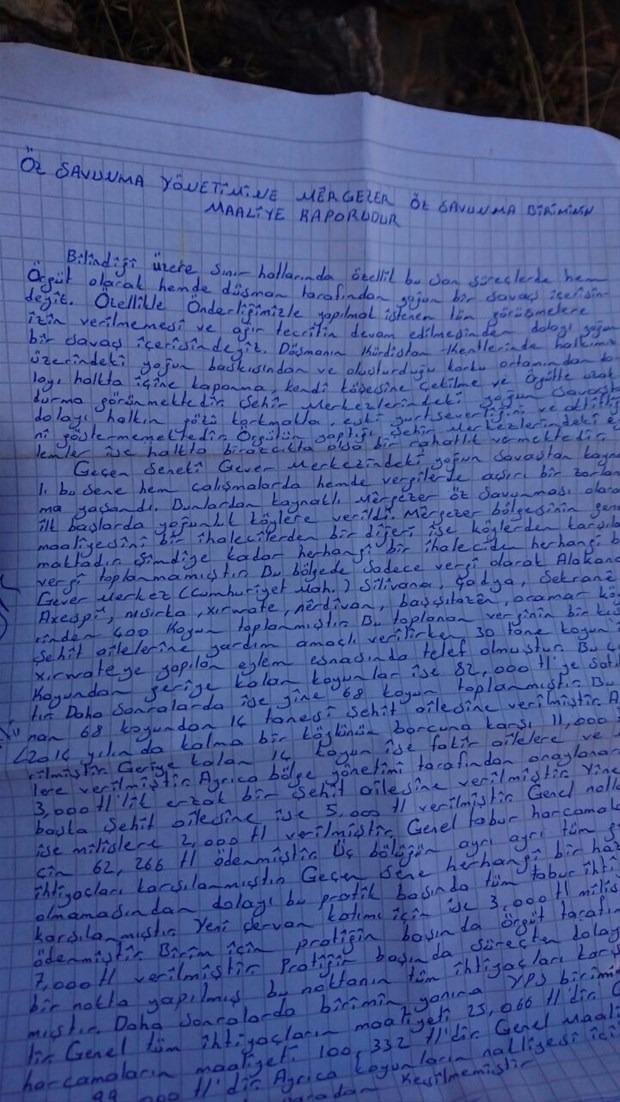 ÖZ SAVUNMA YÖNETİMİNE MÊRGEZER ÖZ SAVUNMA BİRİMİNİN
MAALİYE RAPORUDUR
Bilindiği üzere sınır hatlarında özellik bu son süreçlerde hem
Örgüt olarak hemde düşman tarafından yoğun bir savaş içerisin-
deyiz. Özellikle Önderliğimizle yapılmak istenen tüm görüşmelere
izin verilmemesi ve ağır tecritin devam edilmesinden dolayı yoğun
bir savaş içerisindeyiz. Düşmanın Kürdistan Kentlerinde halkımız
üzerindeki yoğun baskısından ve oluşturduğu korku ortamından
layı halkta içine kapanma, kendi köşesine çekilme ve Örgütte uzak
durma görünmektedir. Şehir Merkezlerindeki yoğun savaştan
dolayı halkın gözü korkmakta, eski yurtseverliğini ve aktifliği
ni göstermemektedir. Örgütün yaptığı şehir Merkezlerindeki ey
lemler ise halkta birazcıkta olsa bir rahatlık vermektedir.
Geçen seneki Gever Merkezindeki yoğun savaştan
bu sene hem çalışmalarda hemde vergilerde aşırı bir zorlan
ma yaşandı. Bunlardan kaynaklı Mêrgezer öz savunması olarak
ilk başlarda yoğunluk köylere verildi. Mêrgezer bölgesinin genel
maaliyesini bir ihalecilerden bir diğeri ise köylerden karşıla
maktadır. Şimdiye kadar herhangi bir ihaleciden herhangi b
vergi toplanmamıştır. Bu bölgede sadece vergi olarak
Gever Merkez (Cumhuriyet Mah.) Silivana, Şadya, Sekranê
Axespî, nisirka, xırwate, nêrdivan, oramar
rinden 400 Koyun toplanmıştır. Bu toplanan verginin bir
Şehit ailelerine yardım amaçlı verilirken 30 tane koyun
xırwate ye yapılan eylem esnasında telef olmuştur. Bu
Koyundan geriye kalan koyunlar ise 82,000 tl'ye
tır. Daha Sonralarda ise yine 68 koyun toplanmıştır. Bu
nan 68 koyundan 14 tanesi Şehit ailesine verilmiştir. A
yılında kalma bir köylünün borcuna karşı 11,000
rilmiştir. Geriye kalan 14 koyun ise fakir ailelere ve
lere verilmiştir. Ayrıca bölge yönetimi tarafından
3,000 tl'lik erzak bir şehit ailesine verilmiştir. Yine
başka Şehit ailesine ise 5,000 tl verilmiştir. Genel
ise milislere 2,000 tl verilmiştir. Genel tabur
çin 62,266 tl ödenmiştir. Üç bölüğün ayrı ayrı tüm
ihtiyaçları karşılanmıştır. Geçen Sene herhangi bir
olmamasından dolayı bu pratik başında tüm tabur
karşılanmıştır. Yeni şervan katımı için ise 3,000 tl
ödenmiştir. Birim için pratiğin başında örgüt
7,000 tl verilmiştir. Pratiğin başında süreçten
bir nokta yapılmış bu noktanın tüm ihtiyaçları
mıştır. Daha Sonralarda birimin yanına YPS
tir. Genel tüm ihtiyaçların maaliyeti 25,066 tl'dir.
harcamaların maaliyeti 100,332 tl'dir. Genel
tl'dir. Ayrıca koyunların nakliyesi
kesilmemiştir